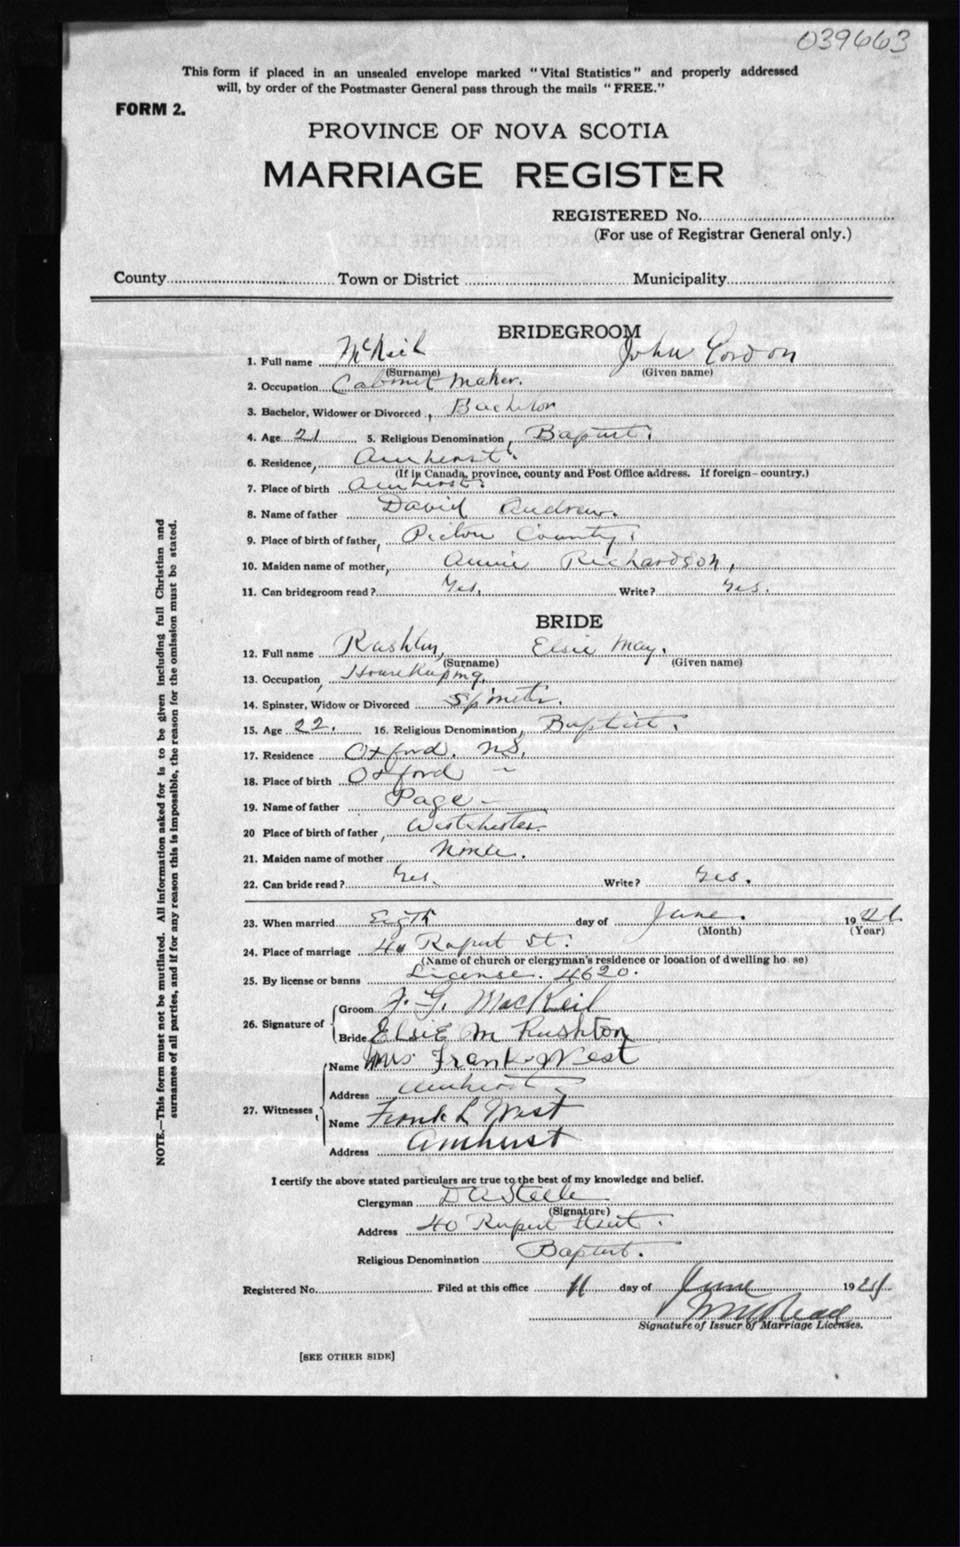 039663
This form if placed in an unsealed envelope marked "Vital Statistics" and properly addressed
will, by order of the Postmaster General pass through the mails "FREE."
FORM 2.
PROVINCE OF NOVA SCOTIA
MARRIAGE REGISTER
REGISTERED No.
(For use of Registrar General only.)
County Town or District Municipality
BRIDEGROOM
1. Full name McNeil John Gordon
(Surname) (Given name)
2. Occupation Cabinet Maker.
3. Bachelor, Widower or Divorced, Bachelor
4. Age 21 5. Religious Denomination, Baptist.
6. Residence, Amherst.
(If in Canada, province, county and Post Office address. If foreign—country.)
7. Place of birth Amherst.
8. Name of father David Andrew.
9. Place of birth of father, Pictou County.
10. Maiden name of mother, Annie Richardson,
11. Can bridegroom read? Yes. Write? Yes.
BRIDE
12. Full name Elsie May.
(Surname) (Given name)
13. Occupation, Housekeeping.
14. Spinster, Widow or Divorced Spinster.
15. Age 22. 16. Religious Denomination, Baptist.
17. Residence Oxford. NS.
18. Place of birth Oxford –
19. Name of father Page –
20 Place of birth of father, Westchester.
21. Maiden name of mother
22. Can bride read? Yes. Write? Yes.
23. When married day of June. 19
(Month) (Year)
24. Place of marriage 40 Rupert St.
(Name of church or clergyman's residence or location of dwelling house)
25. By license or banns License. 4620.
26. Signature of Groom J. G. MacNeil
Bride Elsie M Rushton
27. Witnesses, Name Mrs Frank West
Address Amherst
Name Frank L West
Address Amherst
I certify the above stated particulars are true to the best of my knowledge and belief.
Clergyman D A Steele
(Signature)
Address 40 Rupert Street.
Religious Denomination Baptist.
Registered No. Filed at this office 11 day of June 192
Signature of Issuer of Marriage Licenses.
[SEE OTHER SIDE]
NOTE.—This form must not be mutilated. All information asked for is to be given including full Christian and
surnames of all parties, and if for any reason this is impossible, the reason for the omission must be stated.